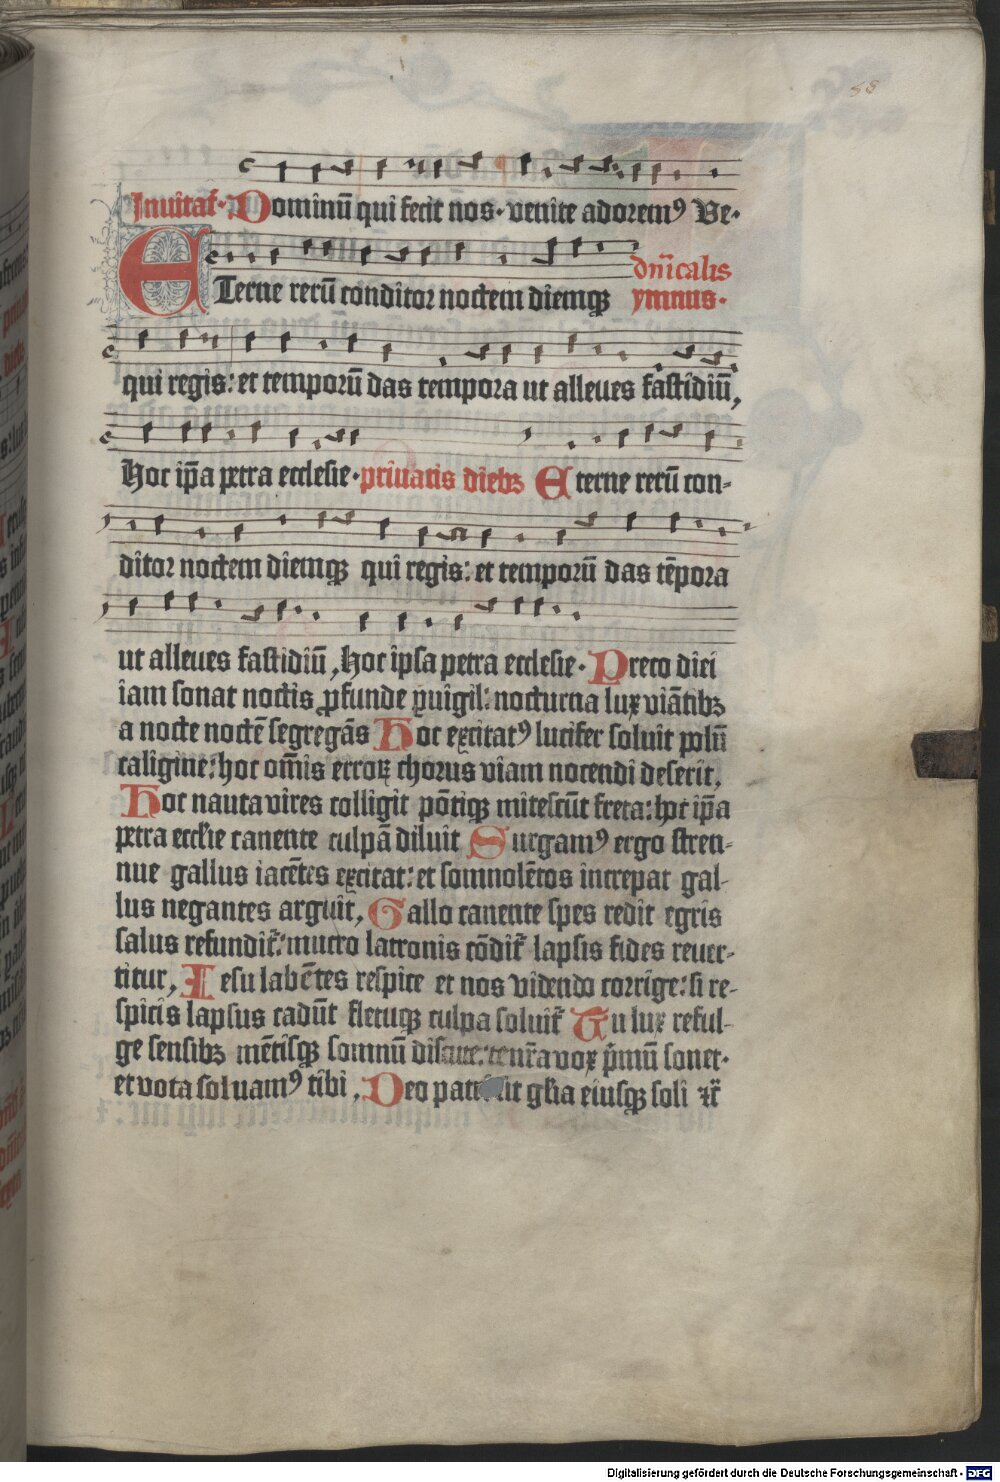 58
Jnuitat̃· Dominū qui fecit nos· venite adorem⁹ Ve·
dn̄icalis
ETerne rerū conditor noctem diemqꝫ ymnus·
qui regis: et temporū das tempora ut alleues fastidiū,
Hoc ip̄a petra ecclesie· priuatis diebꝫ Eterne rerū con-
ditor noctem diemqꝫ qui regis: et temporū das tēpora
ut alleues fastidiū, hoc ipsa petra ecclesie· Preco diei
iam sonat noctis ꝓfunde ꝑuigil: nocturna lux viātibꝫ
a nocte noctē segregās Hoc excitat⁹ lucifer soluit polū
caligine: hoc om̄is erroꝝ chorus viam nocendi deserit,
Hoc nauta vires colligit pōtiqꝫ mitescūt freta: hoc ip̄a
petra eccłie canente culpā diluit Surgam⁹ ergo stren-
nue gallus iacētes excitat: et somnolētos increpat gal-
lus negantes arguit, Gallo canente spes redit egris
salus refundit̃: mucro latronis cōdit̃ lapsis fides reuer-
titur, Iesu labētes respice et nos videndo corrige: si re-
spicis lapsus cadūt fletuqꝫ culpa soluit̃ Tu lux reful-
ge sensibꝫ mētisqꝫ somnū discute: te nr̄a vox p̄mū sonet·
et vota soluam⁹ tibi, Deo patri sit głia eiusqꝫ soli ⁊c̃
Digitalisierung gefördert durch die Deutsche Forschungsgemeinschaft - DFG